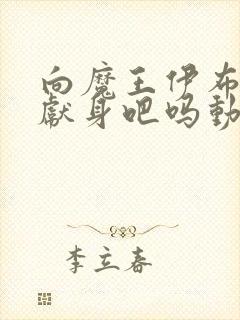 向魔王伊布
獻身吧吗動
李立春